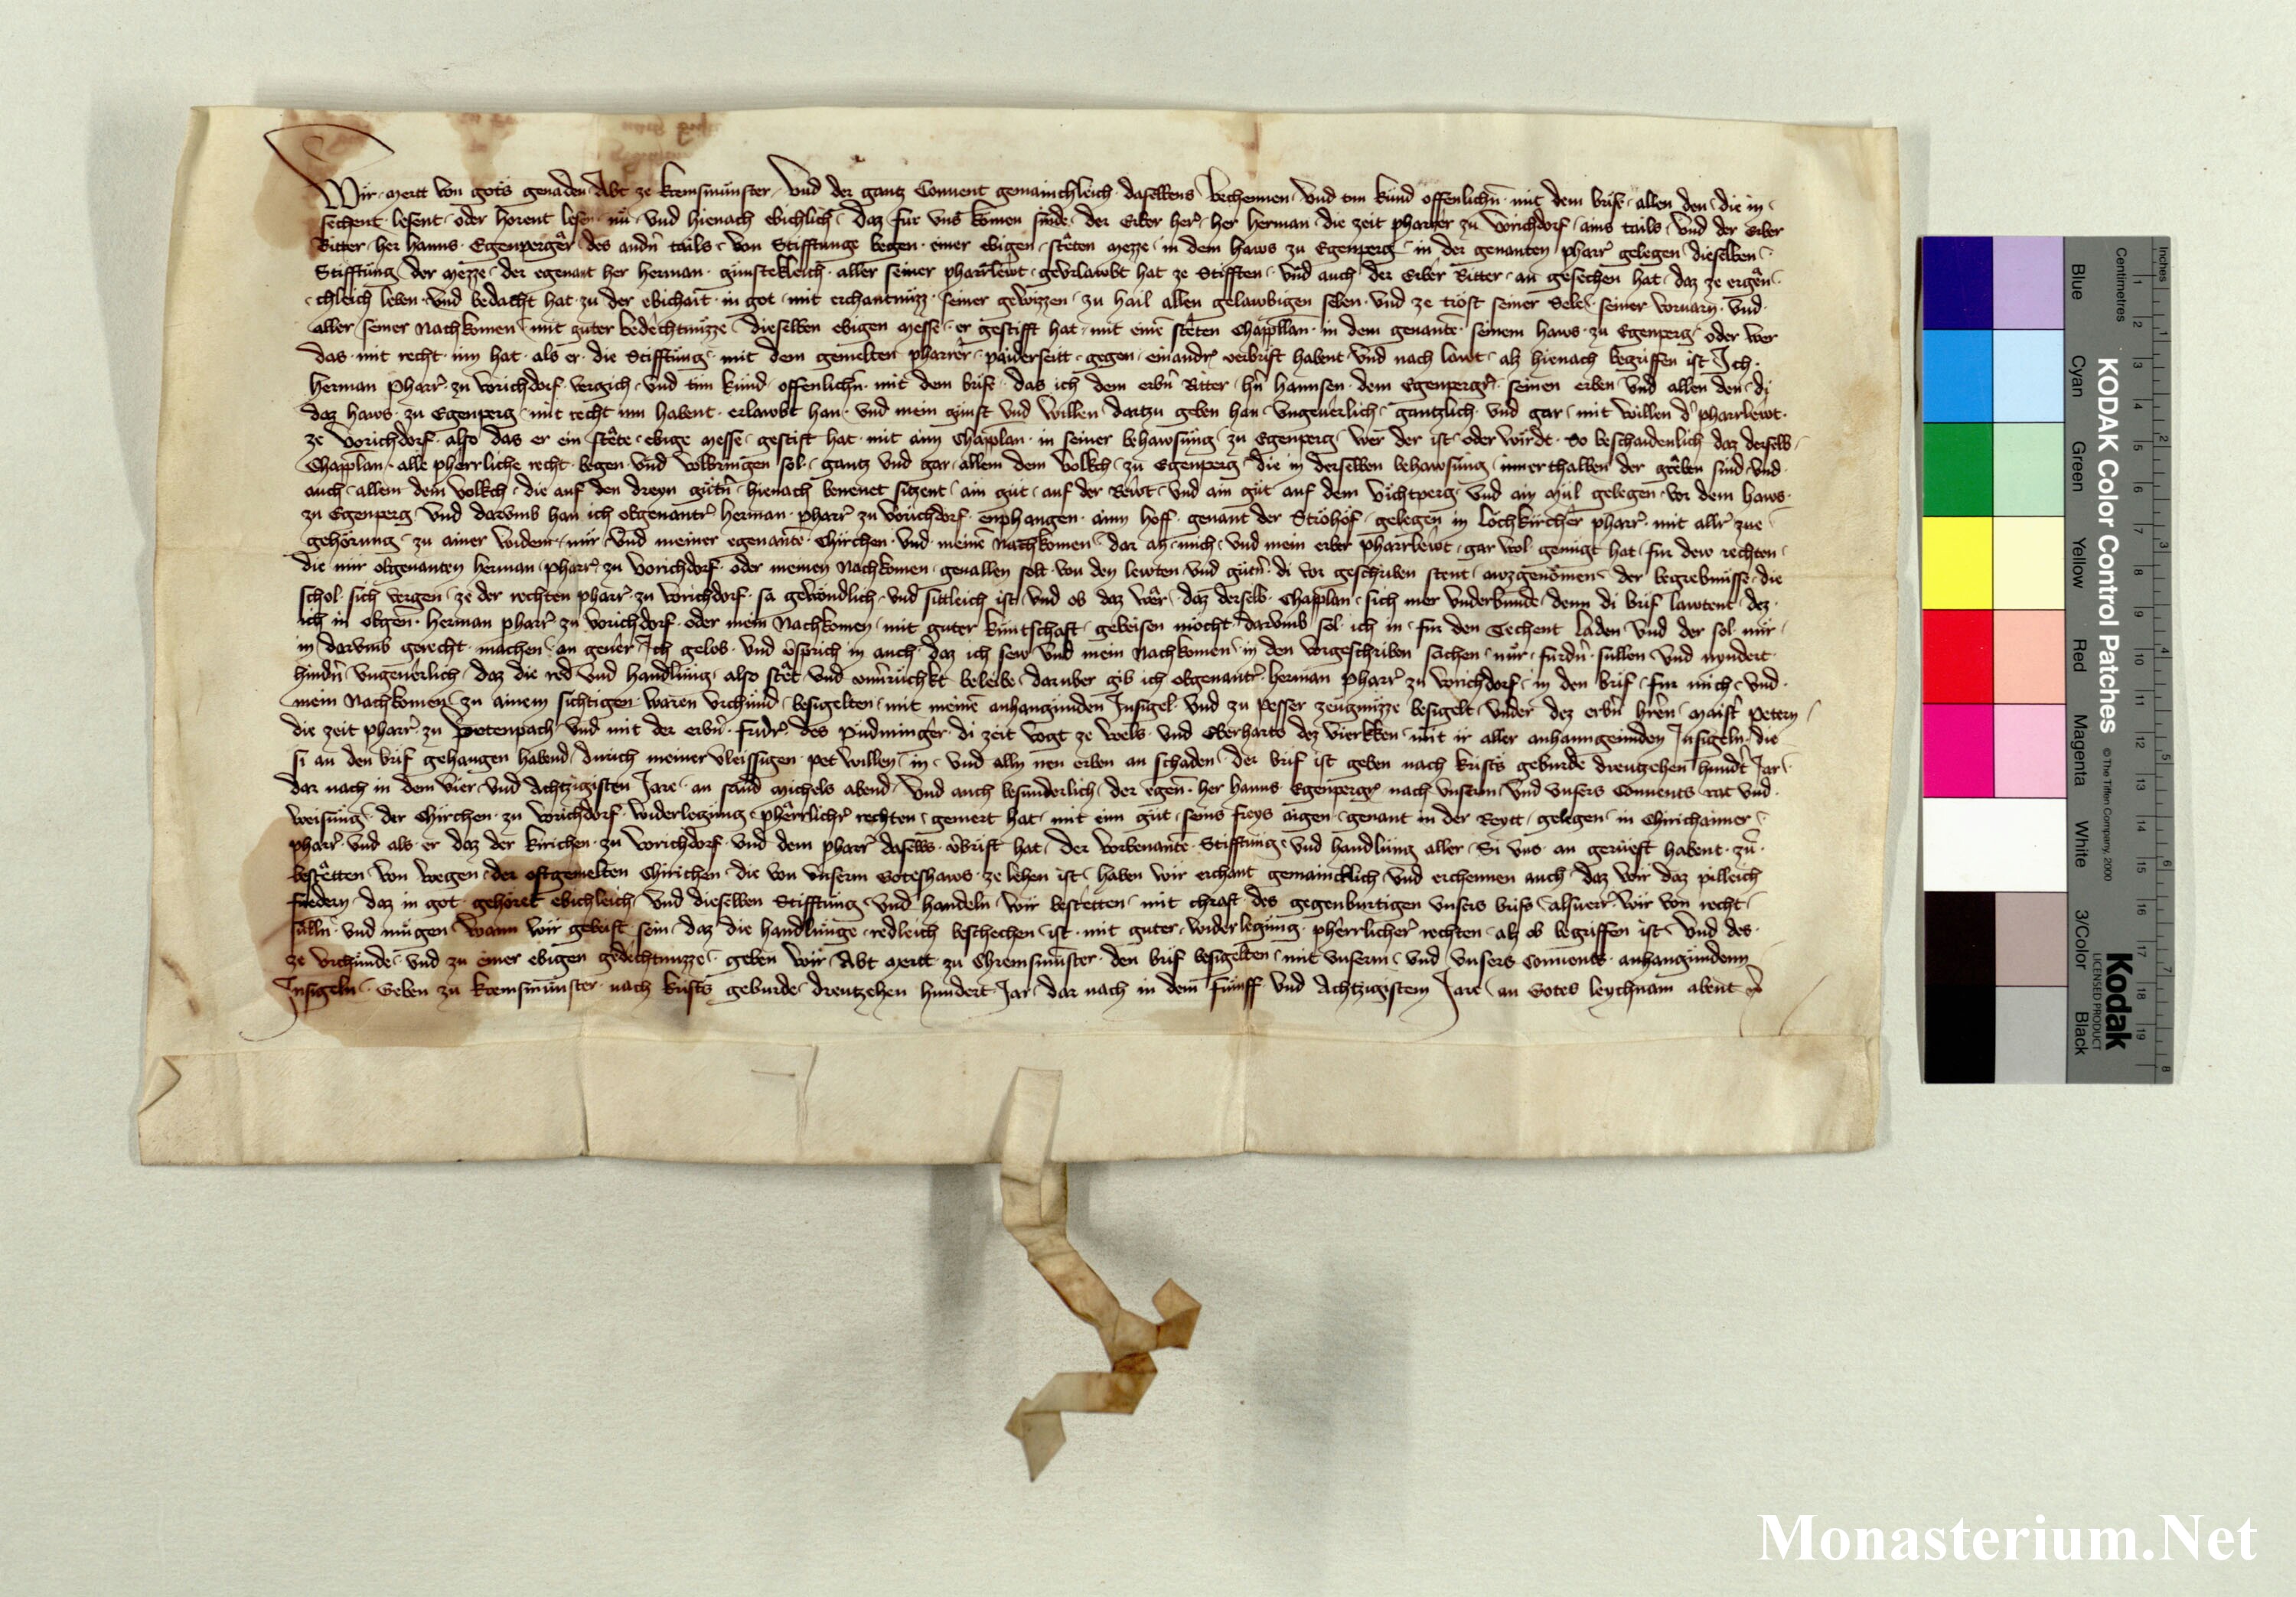 Wir Mertt von gots genaden Abt ze kremsmünster und der gantz Convent gemainchleich daselbens bechennen und tun kund offenlichn mit dem brife allen den die in
sechent lesent oder horent lesen nü und hienach ebichlich daz für uns komen sinde der Erber her her herman die zeit pharrer zu vorichdorf ains tails und der Erber
Ritter her hanns Egenpergër des andn tails von Stifftunge begen einer ebigen stêten mezze in dem haws zu Egenperg in der genanten pharr gelegen dieselben
Stifftung der mezze der egenant her herman günstekleich aller seiner pharrlewt gevrlawbt hat ze Stifften und auch der Erber Ritter an gesechen hat daz ze ergên
chleich leben und bedacht hat zu der ebichait in got mit erchantnüzz seiner gewizzen zu hail allen gelawbigen selen und ze trost seiner Sele seiner vorvarn und
aller seiner Nachkomen mit guter bedechtnüzze dieselben ebigen messe er gestifft hat mit eine stêten Chappllan in dem genante seinem haws zu Egenperg oder wer
das mit recht inn hat als er die Stifftung mit dem gemelten pharrer paiderseitt gegen einandr verbrift habent und nach lawt alz hienach begriffen ist Ich
herman pharr zu vorichdorf vergich und tun kund offenlichn mit dem brife das ich dem erbn Ritter hn hannsen dem Egenpergr seinen erben und allen den di
daz haws zu Egenperg mit recht inn habent erlawbt han und mein gunst und willen dartzu geben han ungeuerlich gantzlich und gar mit willen d pharrlewt
ze vorichdorf also das er ein stête ebige messe gestift hat mit ainn Chapplan in seiner behawsung zu Egenperg wer der ist oder wirdt So beschaidenlich daz derselb
Chapplan alle pherrliche recht begen und volbringen sol gantz und gar allem dem volkch zu Egenperg die in derselben behawsung innerthalben der grêben sind und
auch allem dem volkch die auf den dreyn gütn hienach benenet sitzent ain güt auf der Rêwt und ain güt auf dem vichtperg und ain mül gelegen vor dem haws
zu Egenperg und darumb han ich obgenantr herman pharr zu vorichdorf enphangen ainn hoff genant der Strohof gelegen in lochkircher pharr mit allr zue
gehörung zu ainer widem mir und meiner egenante Chirchen und meine Nachkomen dar an mich und mein erber pharrlewt gar wol genügt hat für dew rechten
die mir obgenanten herman pharr zu vorichdorf oder meinen Nachkomen geuallen solt von den lewten und gütn di vor geschriben stent awzgenomen der begrebnüsse die
schol sich vergen ze der rechten pharr zu vorichdorf sa gewondlich und sittleich ist und ob daz wêr daz derselb Chapplan sich mer underbunde denn di brif lawtent dez
ich in obgen herman pharr zu vorichdorf oder mein Nachkomen mit guter kuntschaft gebeisen mocht darumb sol ich in für den Techent laden und der sol mir
in darumb gerecht machen an geuêr Ich gelob und vsprich in auch daz ich sew und mein Nachkomen in den vorgeschriben sachen nür furdn sullen und nyndert
hindn ungeuerlich daz die red und handlung also stêt und unuruchkt beleibe daruber gib ich obgenantr herman pharr zu vorichdorf in den brif für mich und
mein Nachkomen zu ainem sichtigen waren urchund besigelten mit meine anhangunden Insigel und zu pesser zeugnüzze besigelt under dez erbn hren maistr petern
die zeit pharr zu petenpach und mit der erbn fridr des pudmingêr di zeit vogt ze wels und Eberharts dez vierkken mit ir aller anhanngeinden Insigeln die
si an den brif gehangen habend durich meiner vleissigen pet willen in und alln iren erben an schaden der brif ist geben nach krists geburde dreutzehen hundt Jar
dar nach in dem vier und Achtzigisten Jare an sand michels abend und auch besunderlich der egen her hanns Egenpergr nach unserm und unsers Convents rat und
weisung der Chirchen zu vorichdorf widerlegung pherrlichr rechten gemert hat mit einn güt seins freys aigen genant in der Reytt gelegen in Chirichaimer
pharr und als er daz der kirichen zu vorichdorf und dem pharr daselbs vbrift hat der vorbenante Stifftung und handlung aller Si uns an gerueft habent zu
bestêtten von wegen der oftgemelten Chirichen die von unserm Gotshaws ze lehen ist haben wir erchant gemaincklich und erchennen auch daz wir daz pilleich
fudern daz in got gehöret ebichleich und dieselben Stifftung und handeln wir bestêtten mit chraft des gegenburtigen unsers brifs alsuerr wir von recht
sülln und mügen wann wir gebeist sein daz die handlunge redleich beschechen ist mit guter widerlegung pherrlicher rechten alz ob begriffen ist und des
ze urchunde und zu einer ebigen gedechtnuzze geben wir Abt Mertt zu Chremsmunster den brif besigelten mit unserm und unsers Convents anhangundenn
Insigeln Geben zu kremsmünster nach krists geburde dreutzehen hundert Jar dar nach in dem fünff und Achtzigistem Jare an Gotes leychnam abent
KODAK Color Control Patches
© The Tiffen Company, 2000
Kodak
LICENSED PRODUCT
Inches
Centimetres
Blue Cyan Green Yellow Red Magenta White 3/Color Black
Monasterium.Net